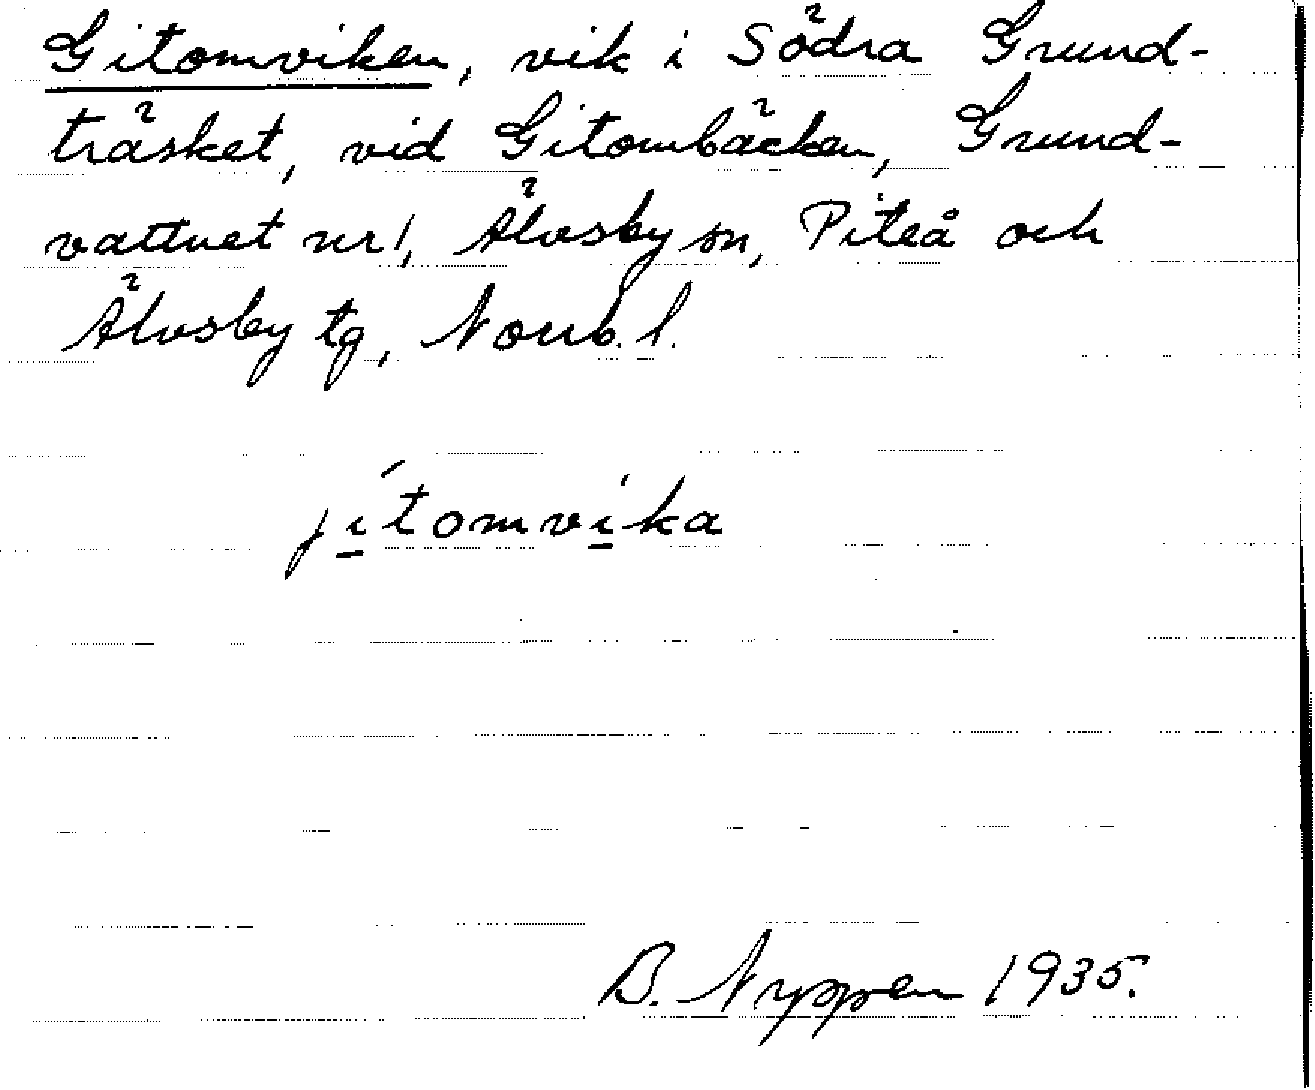 Gitomviken, vik i Södra Grund-
träsket, vid Gitombäcken, Grund-
vattnet nr 1, Älvsby sn, Piteå och
Älvsby tg, Norrb. l.
jítomvíka
B. Nyppen 1935.